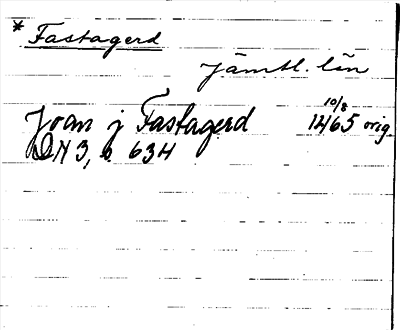 * Fastagerd
Jämtl. län
10/8
Joan j Fastagerd 1465 orig.
DN 3, s 634